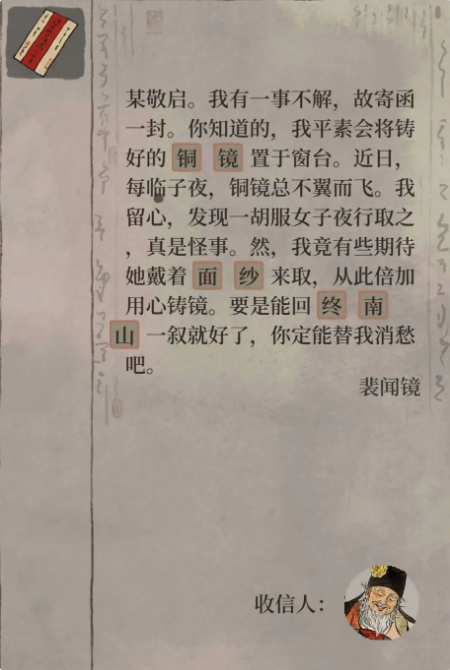 某敬启。我有一事不解，故寄函
一封。你知道的，我平素会将铸
好的 铜 镜 置于窗台。近日，
每临子夜，铜镜总不翼而飞。我
留心，发现一胡服女子夜行取之
，真是怪事。然，我竟有些期待
她戴着 面 纱 来取，从此倍加
用心铸镜。要是能回 终 南
山 一叙就好了，你定能替我消愁
吧。
裴闻镜
收信人：